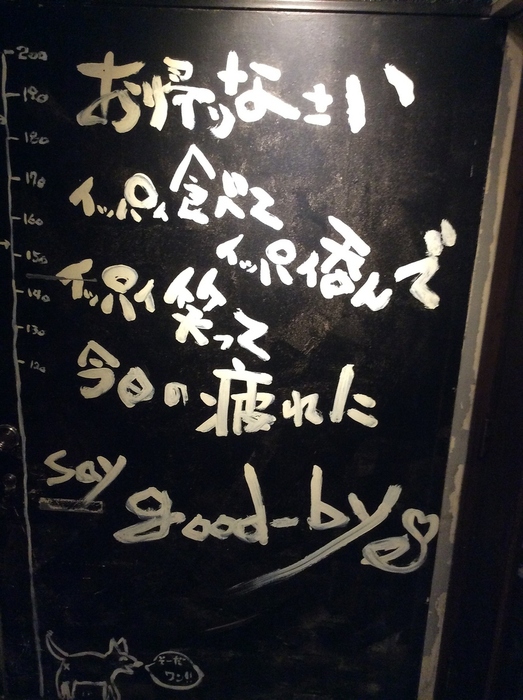 お帰りなさい
イッパイ食べて
イッパイ呑んで
イッパイ笑って
今日の疲れに
say
good-bye
200
190
180
170
160
150
140
130
120
そーだ
ワン!!